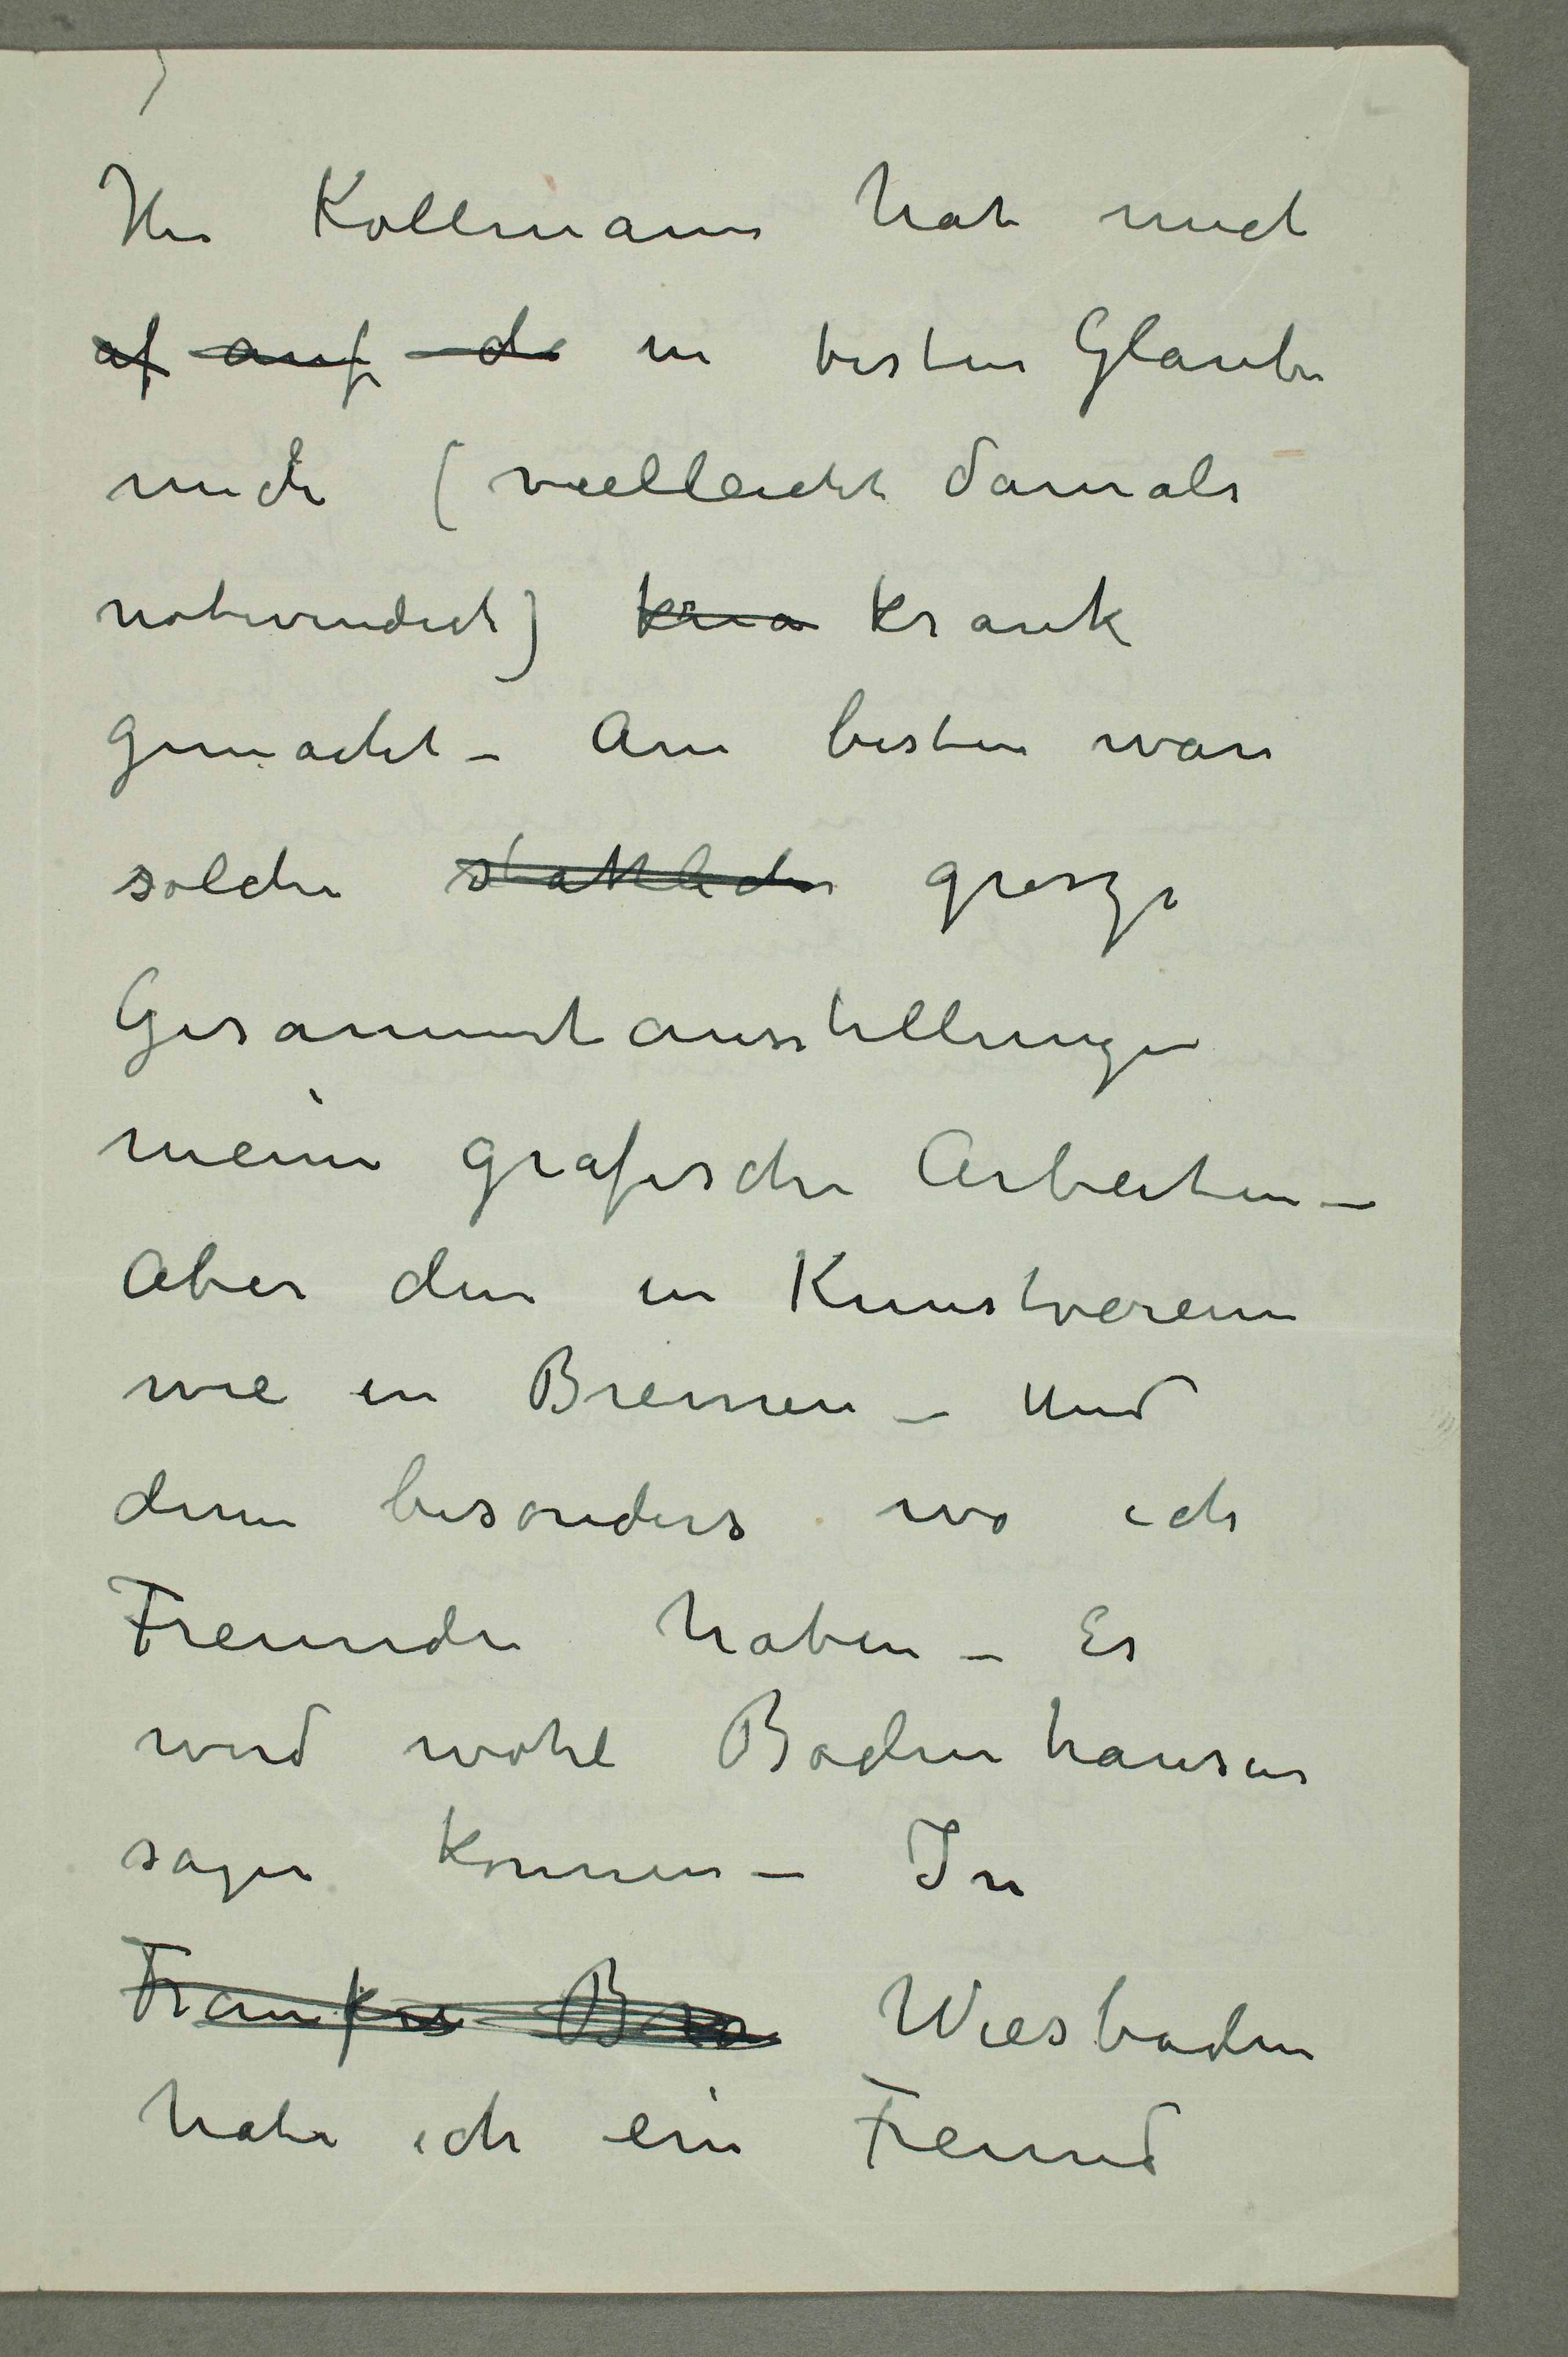 Her Kollmann hat mich
af auf de in besten Glaube
mich (vielleicht damals
notwendich) kra krank
gemacht – Am besten ware
solche stattliche grosze
Gesammtausstellungen
meine grafische Arbeiten –
Aber den in Kunstverein
wie in Bremen – Und
denn besonders wo ich
Freunde haben – Es
wird wohl Bodenhausen
sagen konnen – In
Frankfu Bre Wiesbaden
habe ich ein Freund